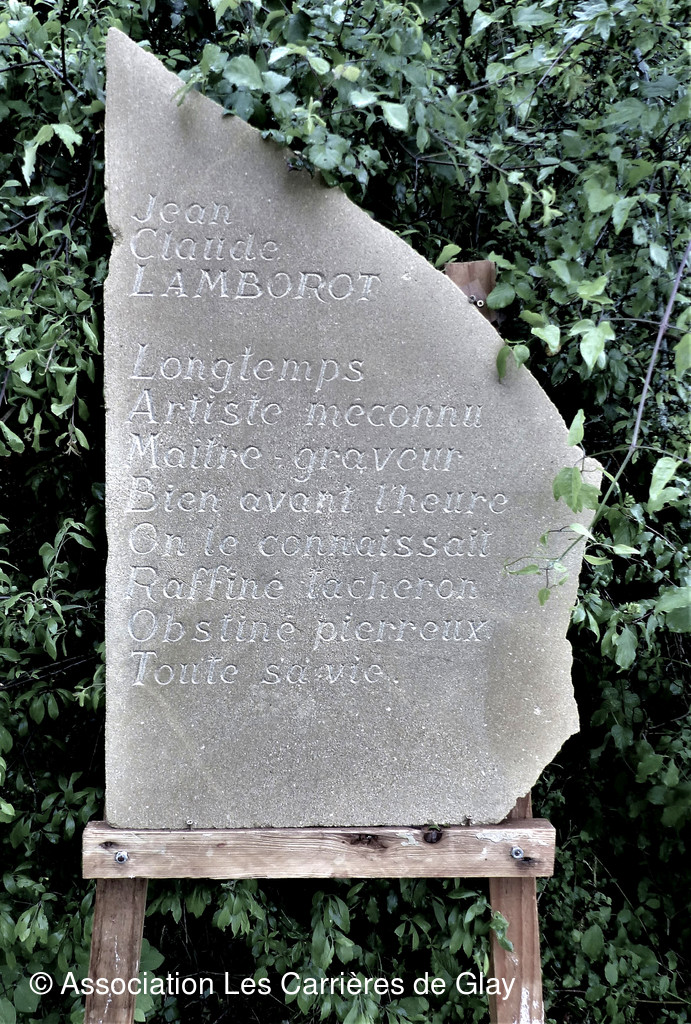 Jean
Claude
LAMBOROT
Longtemps
Artiste méconnu
Maitre-graveur
Bien avant l'heure
On le connaissait
Raffiné tacheron
Obstiné pierreux
Toute sa vie.
© Association Les Carrières de Glay